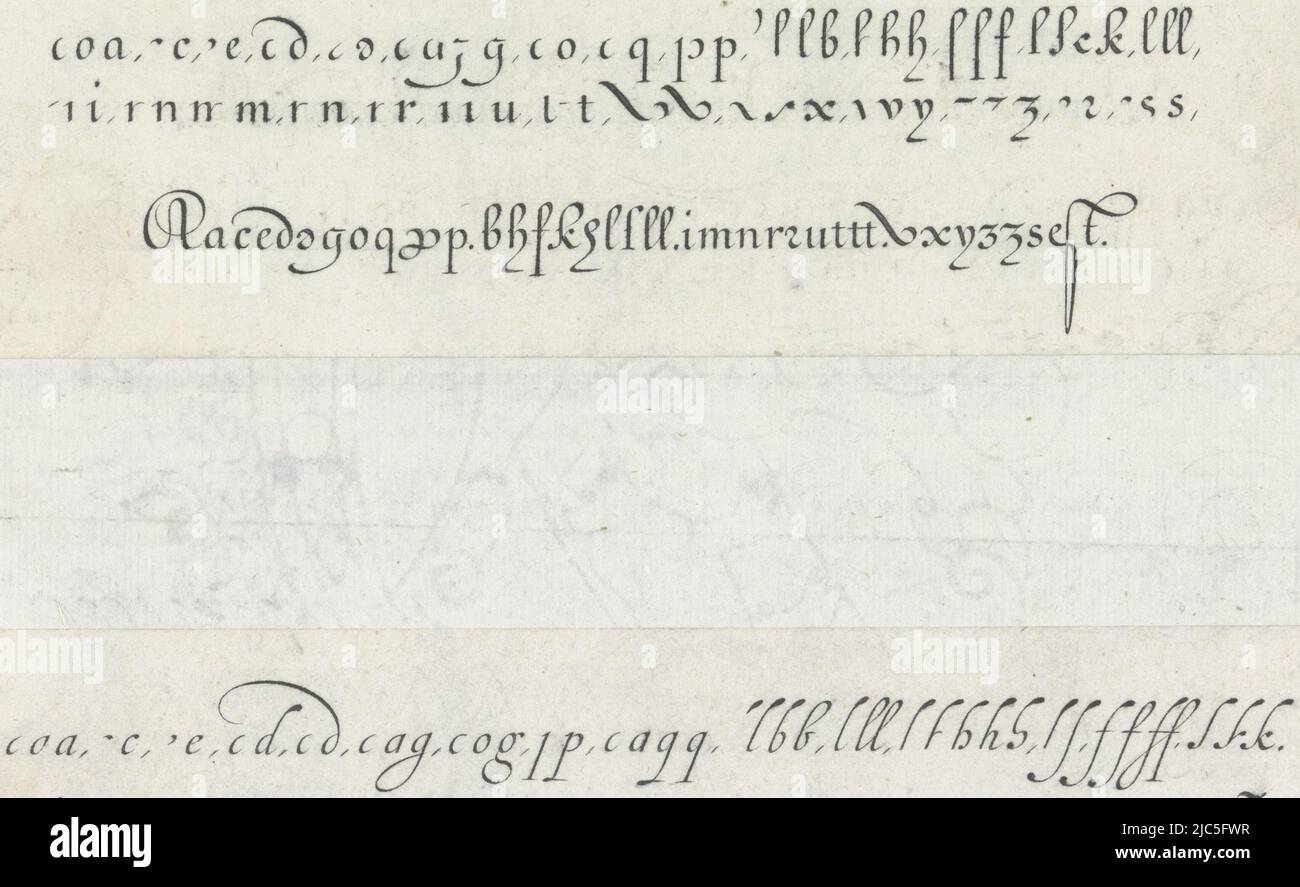 coa, c, e, cd, co, cg, co, c q, pp, llb, lhh, ſſf, lſck, lll,
ıi, rnn m, rn, rr, ııu, l t t, v, x, vy, z, 2, s s,
Aacedəgoqpp. bhfkhlſll. imnrrutttvxyzzseſt.
coa, c, e, cd, cd, cag, cog, p, caqq, lbb, lll, lhhh, lſ, ffff, k.
alamy
Image ID: 2JC5FWR
www.alamy.com